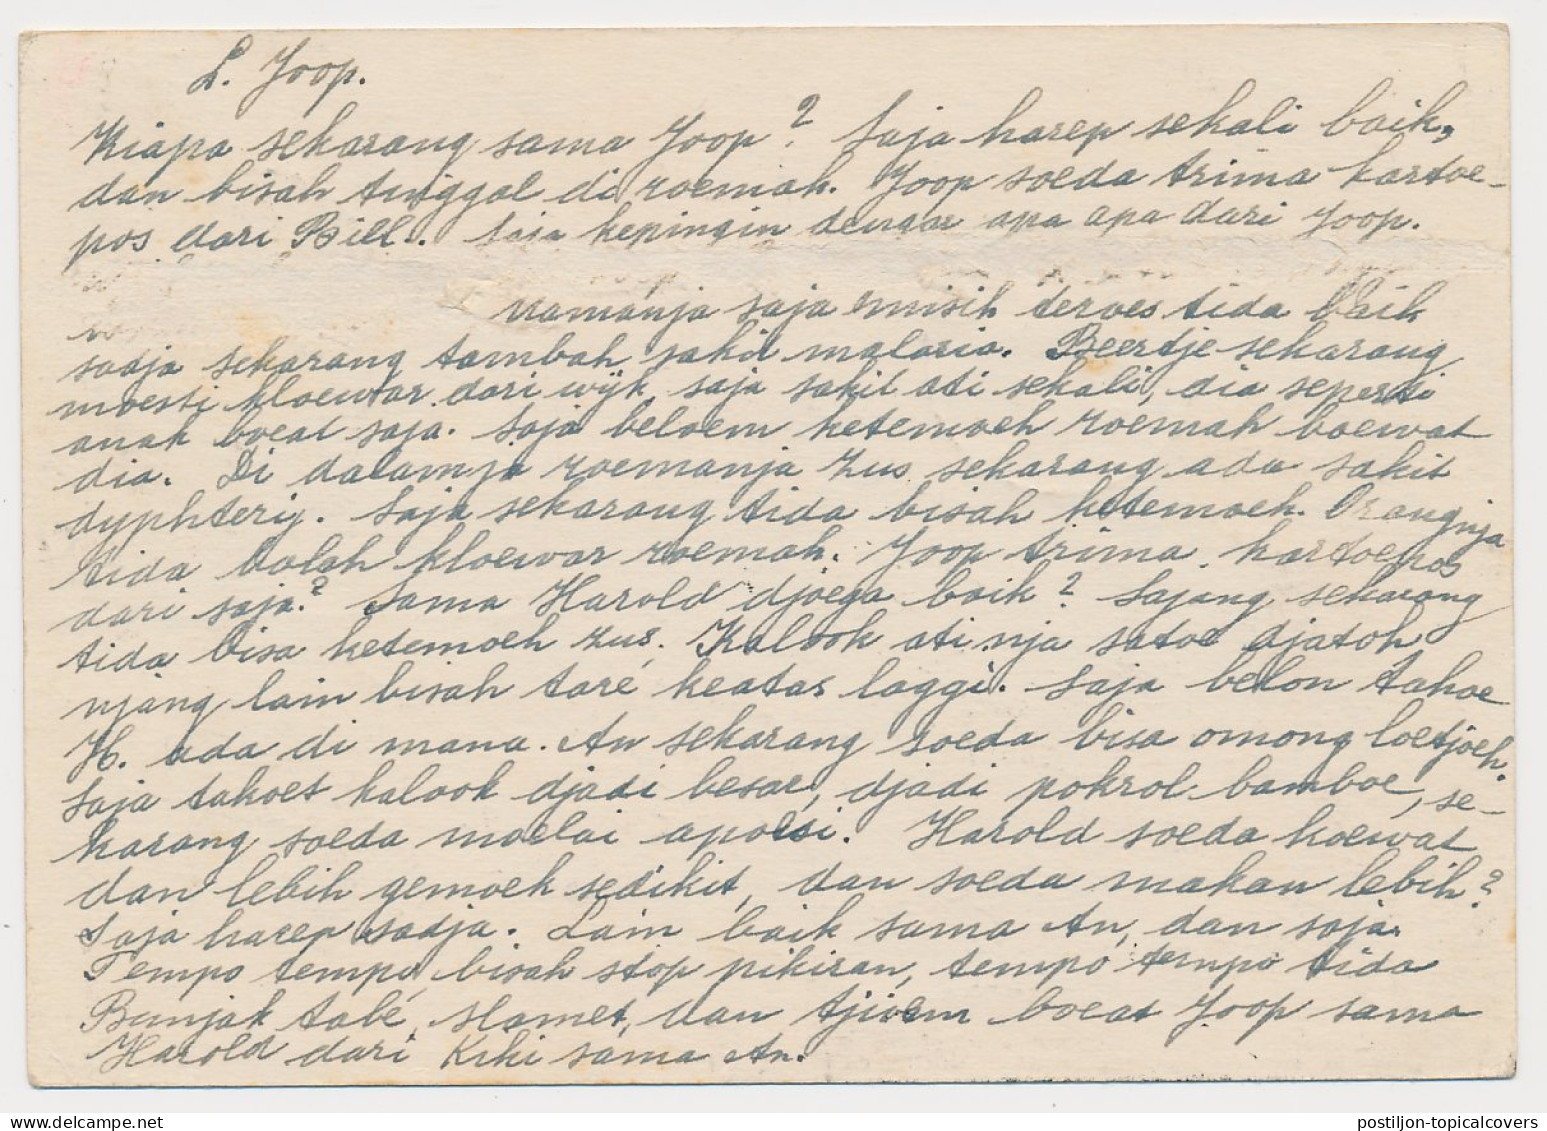 L. Joop.
Kiapa sekarang sama Joop? Saja harep sekali baik,
dan bisah tinggal di roemah. Joop soeda trima kartoe-
pos dari Bill.. Saja kepingin dengar apa apa dari Joop.
namanja saja misih teroes tida baik
sadja sekarang tambah sakit malaria. Beertje sekarang
moesti kloewar dari wijk, saja sakit ati sekali, dia seperti
anak boeat saja. Saja beloem ketemoeh roemah boewat
dia. Di dalamja roemanja Zus sekarang ada sakit
dyphterij. Saja sekarang tida bisah ketemoeh. Orangnja
tida bolah kloewar roemah. Joop trima kartoepos
dari saja? Sama Harold djoega baik? Sajang sekarang
tida bisa ketemoeh Zus. Kalook ati nja satoe djatoh
njang lain bisah taré keatas laggi. Saja belon tahoe
H. ada di mana. An sekarang soeda bisa omong loetjoeh.
Saja takoet kalook djadi besar, djadi pokrol bamboe, se-
karang soeda moelai apolsi. Harold soeda koewat
dan lebih gemoek sedikit, dan soeda makan lebih?
Saja harep sadja. Lain baik sama An, dan saja.
Tempo tempo bisah stop pikiran, tempo tempo tida
Banjak tabé, slamet, dan tjioem boeat Joop sama
Harold dari Kiki sama An.
postiljon-topicalcovers